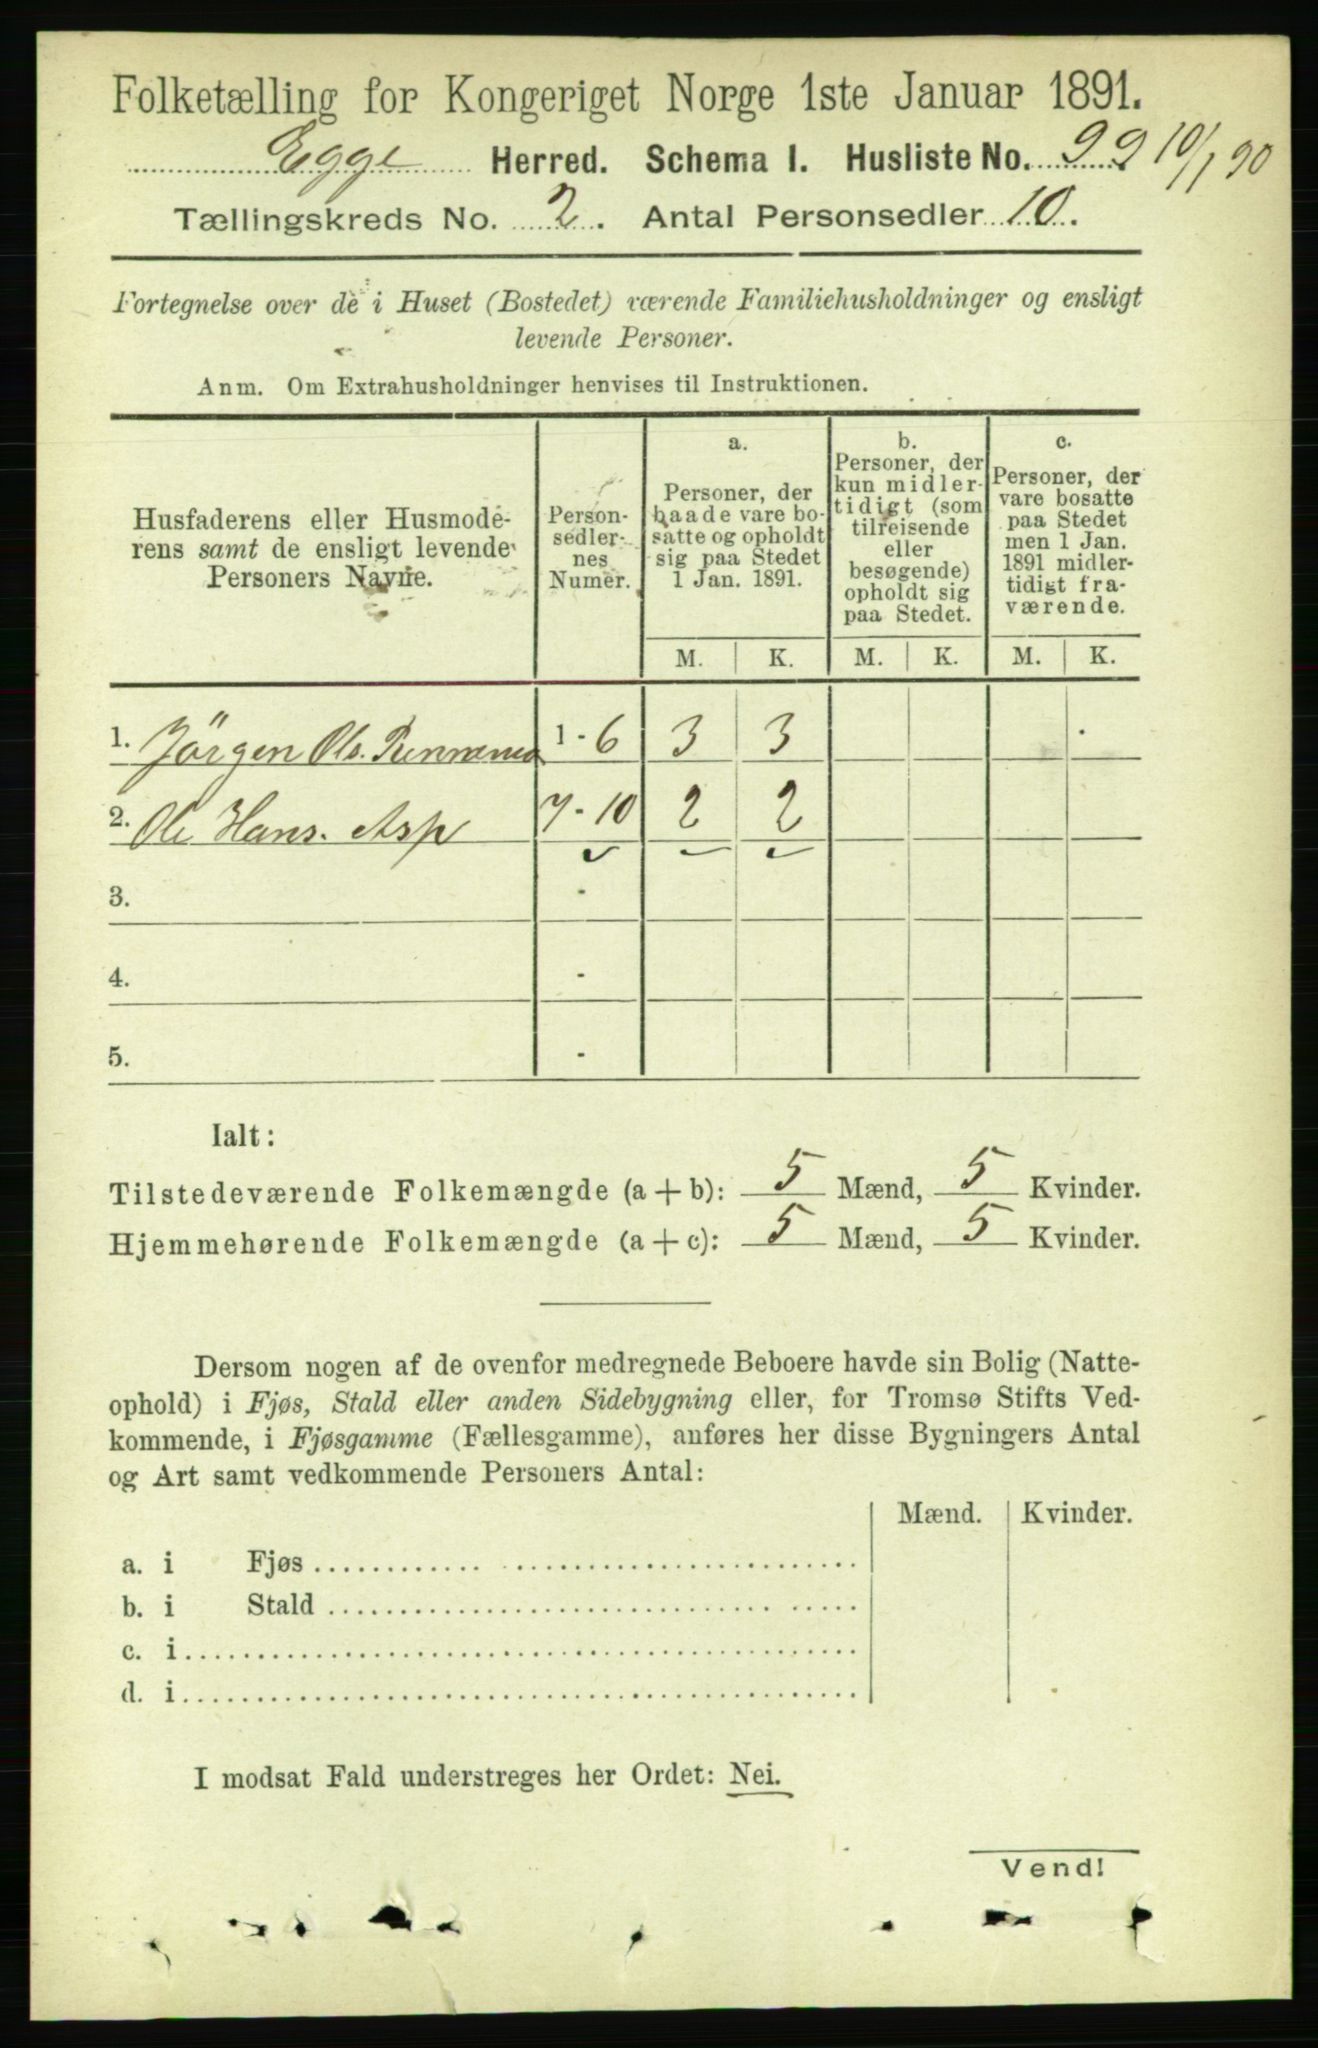 Folketælling for Kongeriget Norge 1ste Januar 1891.
Egge Herred. Schema I. Husliste No. 99 10/1 90
Tællingskreds No. 2. Antal Personsedler 10.
Fortegnelse over de i Huset (Bostedet) værende Familiehusholdninger og ensligt
levende Personer.
Anm. Om Extrahusholdninger henvises til Instruktionen.
Husfaderens eller Husmode-
rens samt de ensligt levende
Personers Navne.
Person-
sedler-
nes
Numer.
a.
Personer, der
baade vare bo-
satte og opholdt
sig paa Stedet
1 Jan. 1891.
b.
Personer, der
kun midler-
tidigt (som
tilreisende
eller
besøgende)
opholdt sig
paa Stedet.
c.
Personer, der
vare bosatte
paa Stedet
men 1 Jan.
1891 midler-
tidigt fra-
værende.
M. K. M. K. M. K.
1. Jörgen Ols. 1 - 6 3 3
2. Ole Hans. Asp 7 - 10 2 2
3. -
4. -
5. -
Ialt:
Tilstedeværende Folkemængde (a + b): 5 Mænd, 5 Kvinder.
Hjemmehørende Folkemængde (a + c): 5 Mænd, 5 Kvinder.
Dersom nogen af de ovenfor medregnede Beboere havde sin Bolig (Natte-
ophold) i Fjøs, Stald eller anden Sidebygning eller, for Tromsø Stifts Ved-
kommende, i Fjøsgamme (Fællesgamme), anføres her disse Bygningers Antal
og Art samt vedkommende Personers Antal:
Mænd. Kvinder.
a. i Fjøs
b. i Stald
c. i
d. i
I modsat Fald understreges her Ordet: Nei.
Vend!